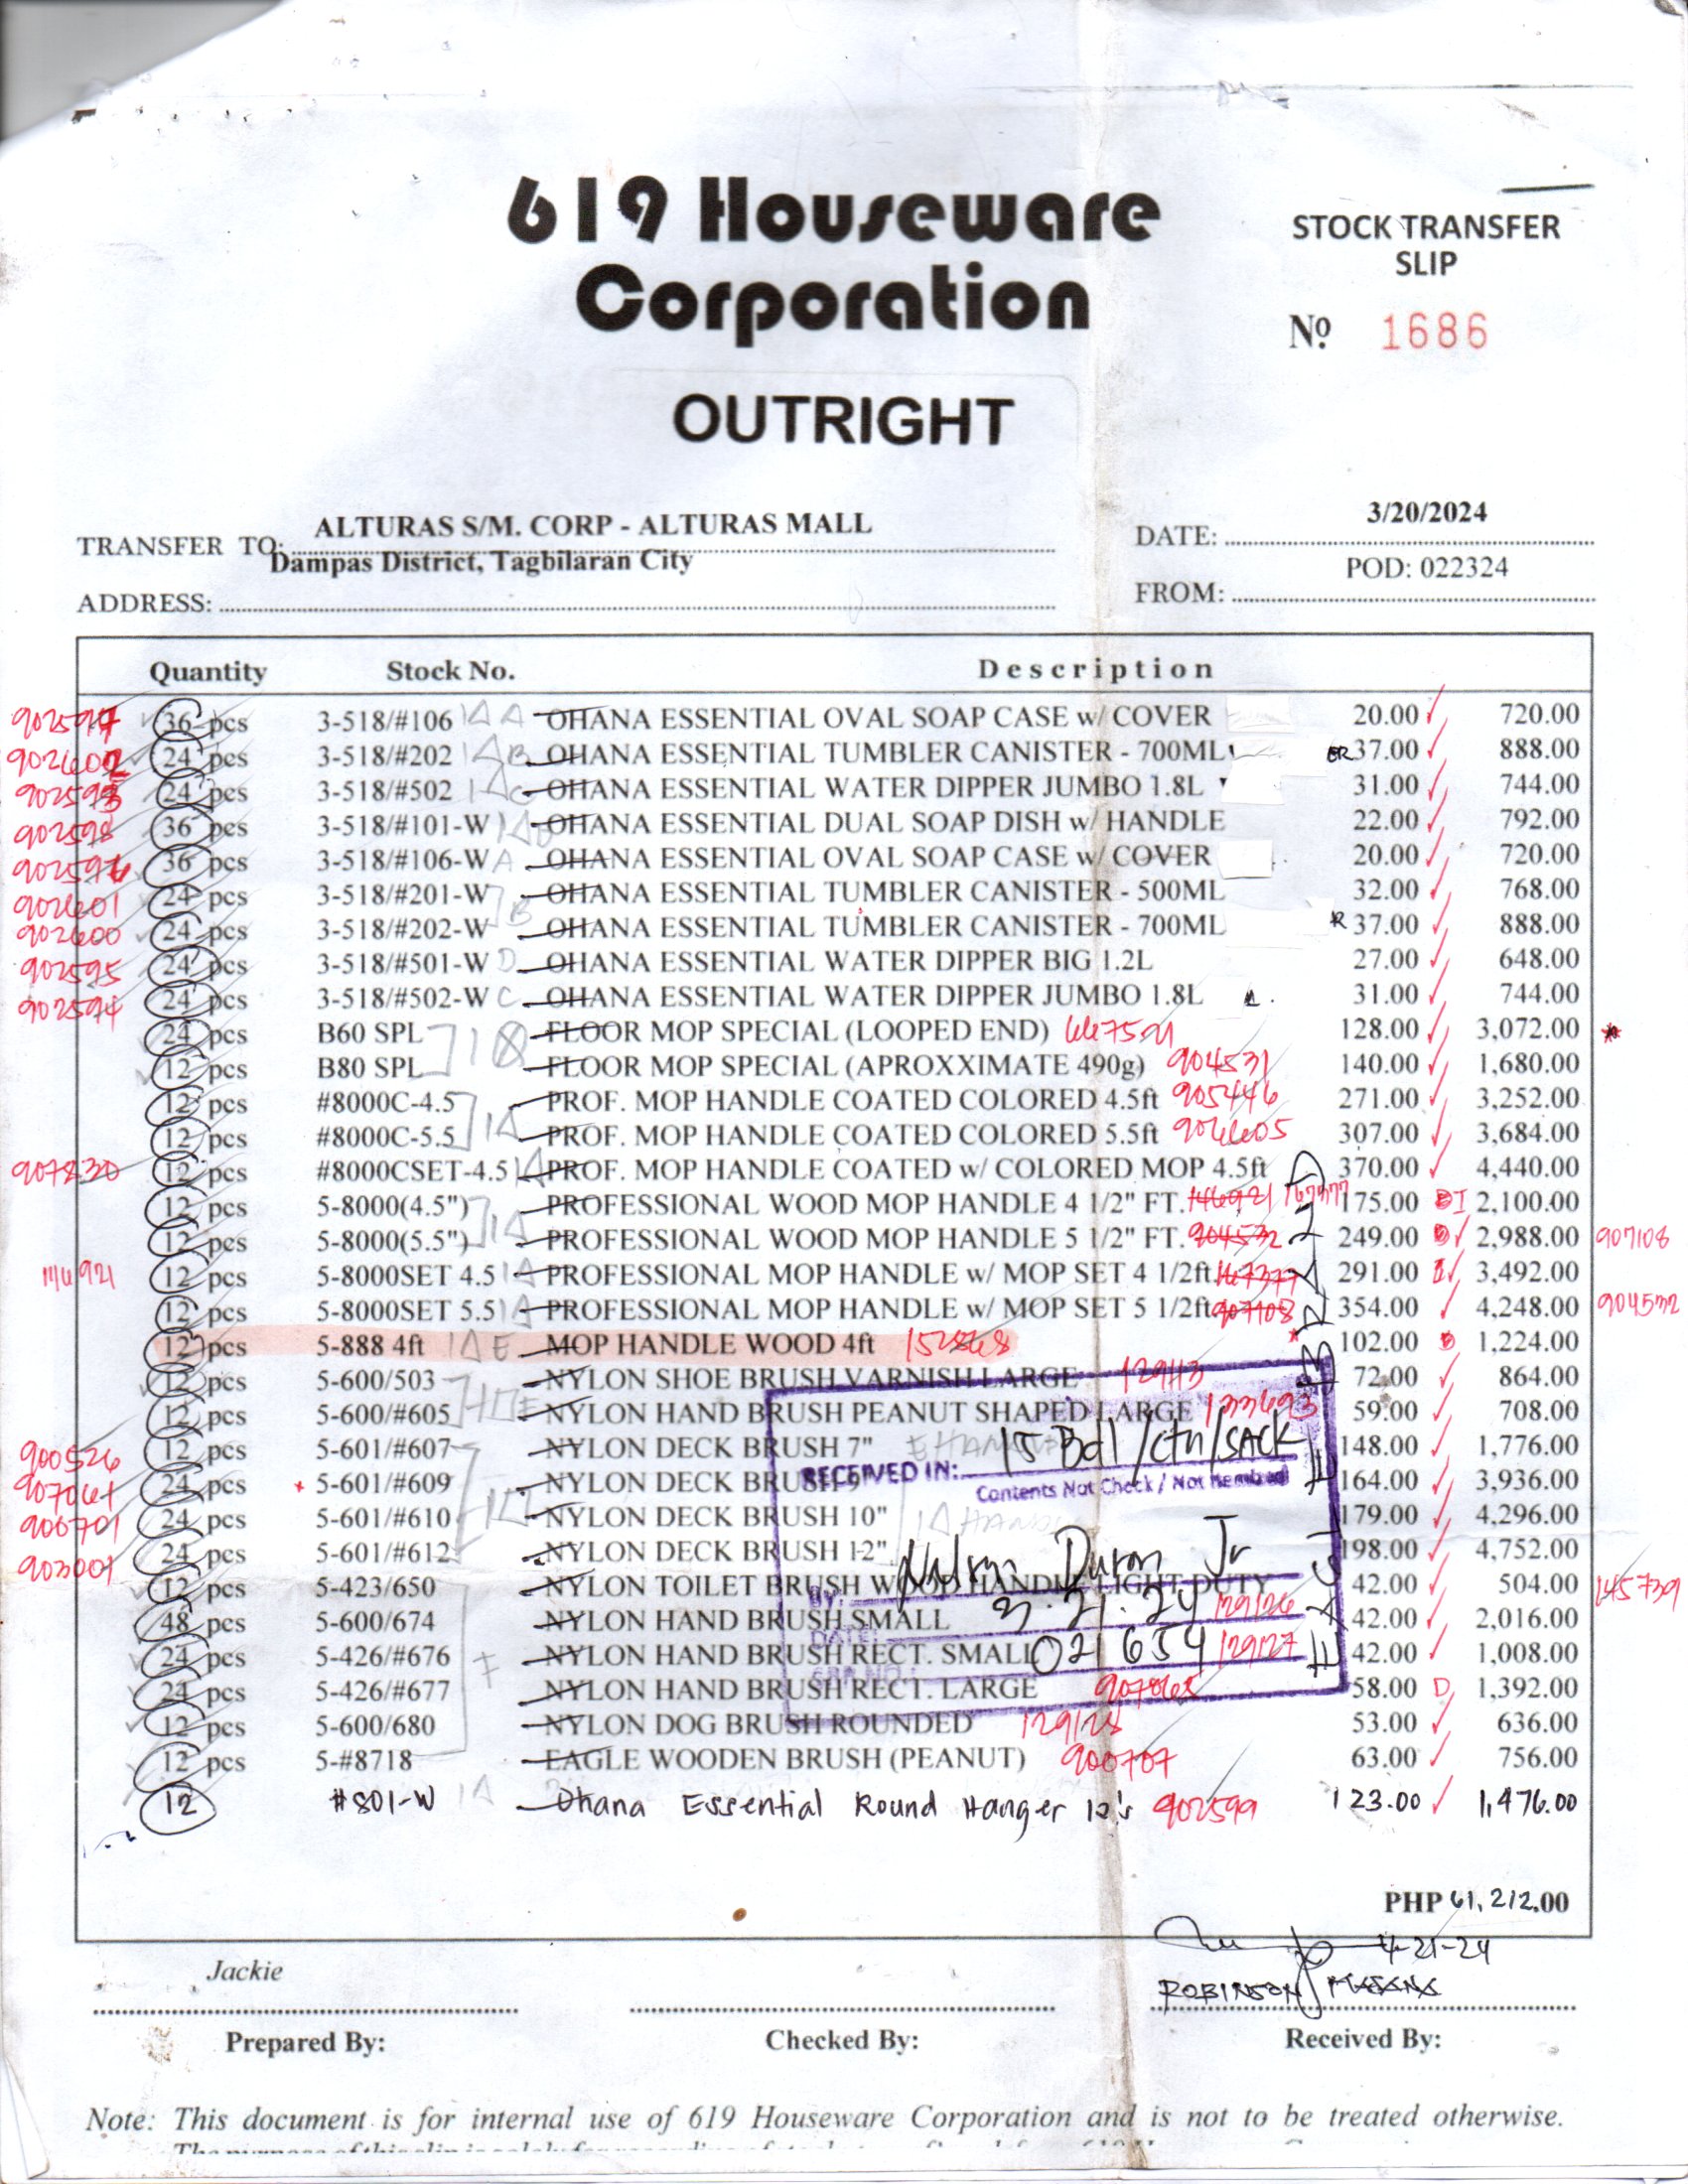 619 Houseware
Corporation
STOCK TRANSFER
SLIP
Nº 1686
OUTRIGHT
TRANSFER TO: ALTURAS S/M. CORP - ALTURAS MALL
Dampas District, Tagbilaran City
ADDRESS:
DATE: 3/20/2024
POD: 022324
FROM:
Quantity Stock No. Description
36 pcs 3-518/#106 OHANA ESSENTIAL OVAL SOAP CASE w/ COVER 20.00 720.00
24 pcs 3-518/#202 OHANA ESSENTIAL TUMBLER CANISTER - 700ML 37.00 888.00
24 pcs 3-518/#502 OHANA ESSENTIAL WATER DIPPER JUMBO 1.8L 31.00 744.00
902598 36 pcs 3-518/#101-W OHANA ESSENTIAL DUAL SOAP DISH w/ HANDLE 22.00 792.00
902596 36 pcs 3-518/#106-W A OHANA ESSENTIAL OVAL SOAP CASE w/ COVER 20.00 720.00
902601 24 pcs 3-518/#201-W OHANA ESSENTIAL TUMBLER CANISTER - 500ML 32.00 768.00
902600 24 pcs 3-518/#202-W B OHANA ESSENTIAL TUMBLER CANISTER - 700ML 37.00 888.00
902595 24 pcs 3-518/#501-W D OHANA ESSENTIAL WATER DIPPER BIG 1.2L 27.00 648.00
902594 24 pcs 3-518/#502-W C OHANA ESSENTIAL WATER DIPPER JUMBO 1.8L 31.00 744.00
24 pcs B60 SPL FLOOR MOP SPECIAL (LOOPED END) 128.00 3,072.00
12 pcs B80 SPL FLOOR MOP SPECIAL (APROXXIMATE 490g) 904531 140.00 1,680.00
12 pcs #8000C-4.5 PROF. MOP HANDLE COATED COLORED 4.5ft 905446 271.00 3,252.00
12 pcs #8000C-5.5 1A PROF. MOP HANDLE COATED COLORED 5.5ft 307.00 3,684.00
12 pcs #8000CSET-4.5 1A PROF. MOP HANDLE COATED w/ COLORED MOP 4.5ft 370.00 4,440.00
12 pcs 5-8000(4.5") PROFESSIONAL WOOD MOP HANDLE 4 1/2" FT. 146921 167377 175.00 2,100.00
12 pcs 5-8000(5.5") 1A PROFESSIONAL WOOD MOP HANDLE 5 1/2" FT. 904532 249.00 2,988.00 907108
146921 12 pcs 5-8000SET 4.5 1A PROFESSIONAL MOP HANDLE w/ MOP SET 4 1/2ft. 167377 291.00 3,492.00
12 pcs 5-8000SET 5.5 1A PROFESSIONAL MOP HANDLE w/ MOP SET 5 1/2ft 907108 354.00 4,248.00 904532
12 pcs 5-888 4ft 1A E MOP HANDLE WOOD 4ft 102.00 1,224.00
12 pcs 5-600/503 NYLON SHOE BRUSH VARNISH LARGE 129113 72.00 864.00
12 pcs 5-600/#605 NYLON HAND BRUSH PEANUT SHAPED LARGE 133693 59.00 708.00
900526 12 pcs 5-601/#607 NYLON DECK BRUSH 7" 148.00 1,776.00
907061 24 pcs 5-601/#609 NYLON DECK BRUSH 9" 164.00 3,936.00
906701 24 pcs 5-601/#610 NYLON DECK BRUSH 10" 179.00 4,296.00
903001 24 pcs 5-601/#612 NYLON DECK BRUSH 12" 198.00 4,752.00
12 pcs 5-423/650 NYLON TOILET BRUSH WOOD HANDLE LIGHT DUTY 42.00 504.00 145739
48 pcs 5-600/674 NYLON HAND BRUSH SMALL 129126 42.00 2,016.00
24 pcs 5-426/#676 NYLON HAND BRUSH RECT. SMALL 129127 42.00 1,008.00
24 pcs 5-426/#677 NYLON HAND BRUSH RECT. LARGE 907065 58.00 D 1,392.00
12 pcs 5-600/680 NYLON DOG BRUSH ROUNDED 53.00 636.00
12 pcs 5-#8718 EAGLE WOODEN BRUSH (PEANUT) 900707 63.00 756.00
12 #801-W 1A Ohana Essential Round Hanger 12's 902599 123.00 1,476.00
15 Bdl/ctn/sack
RECEIVED IN:
Contents Not Check / Not
Duron Jr
BY:
3.21.24
DATE:
021654
PHP 61,212.00
4-21-24
Jackie
ROBINSON
Prepared By: Checked By: Received By:
Note: This document is for internal use of 619 Houseware Corporation and is not to be treated otherwise.